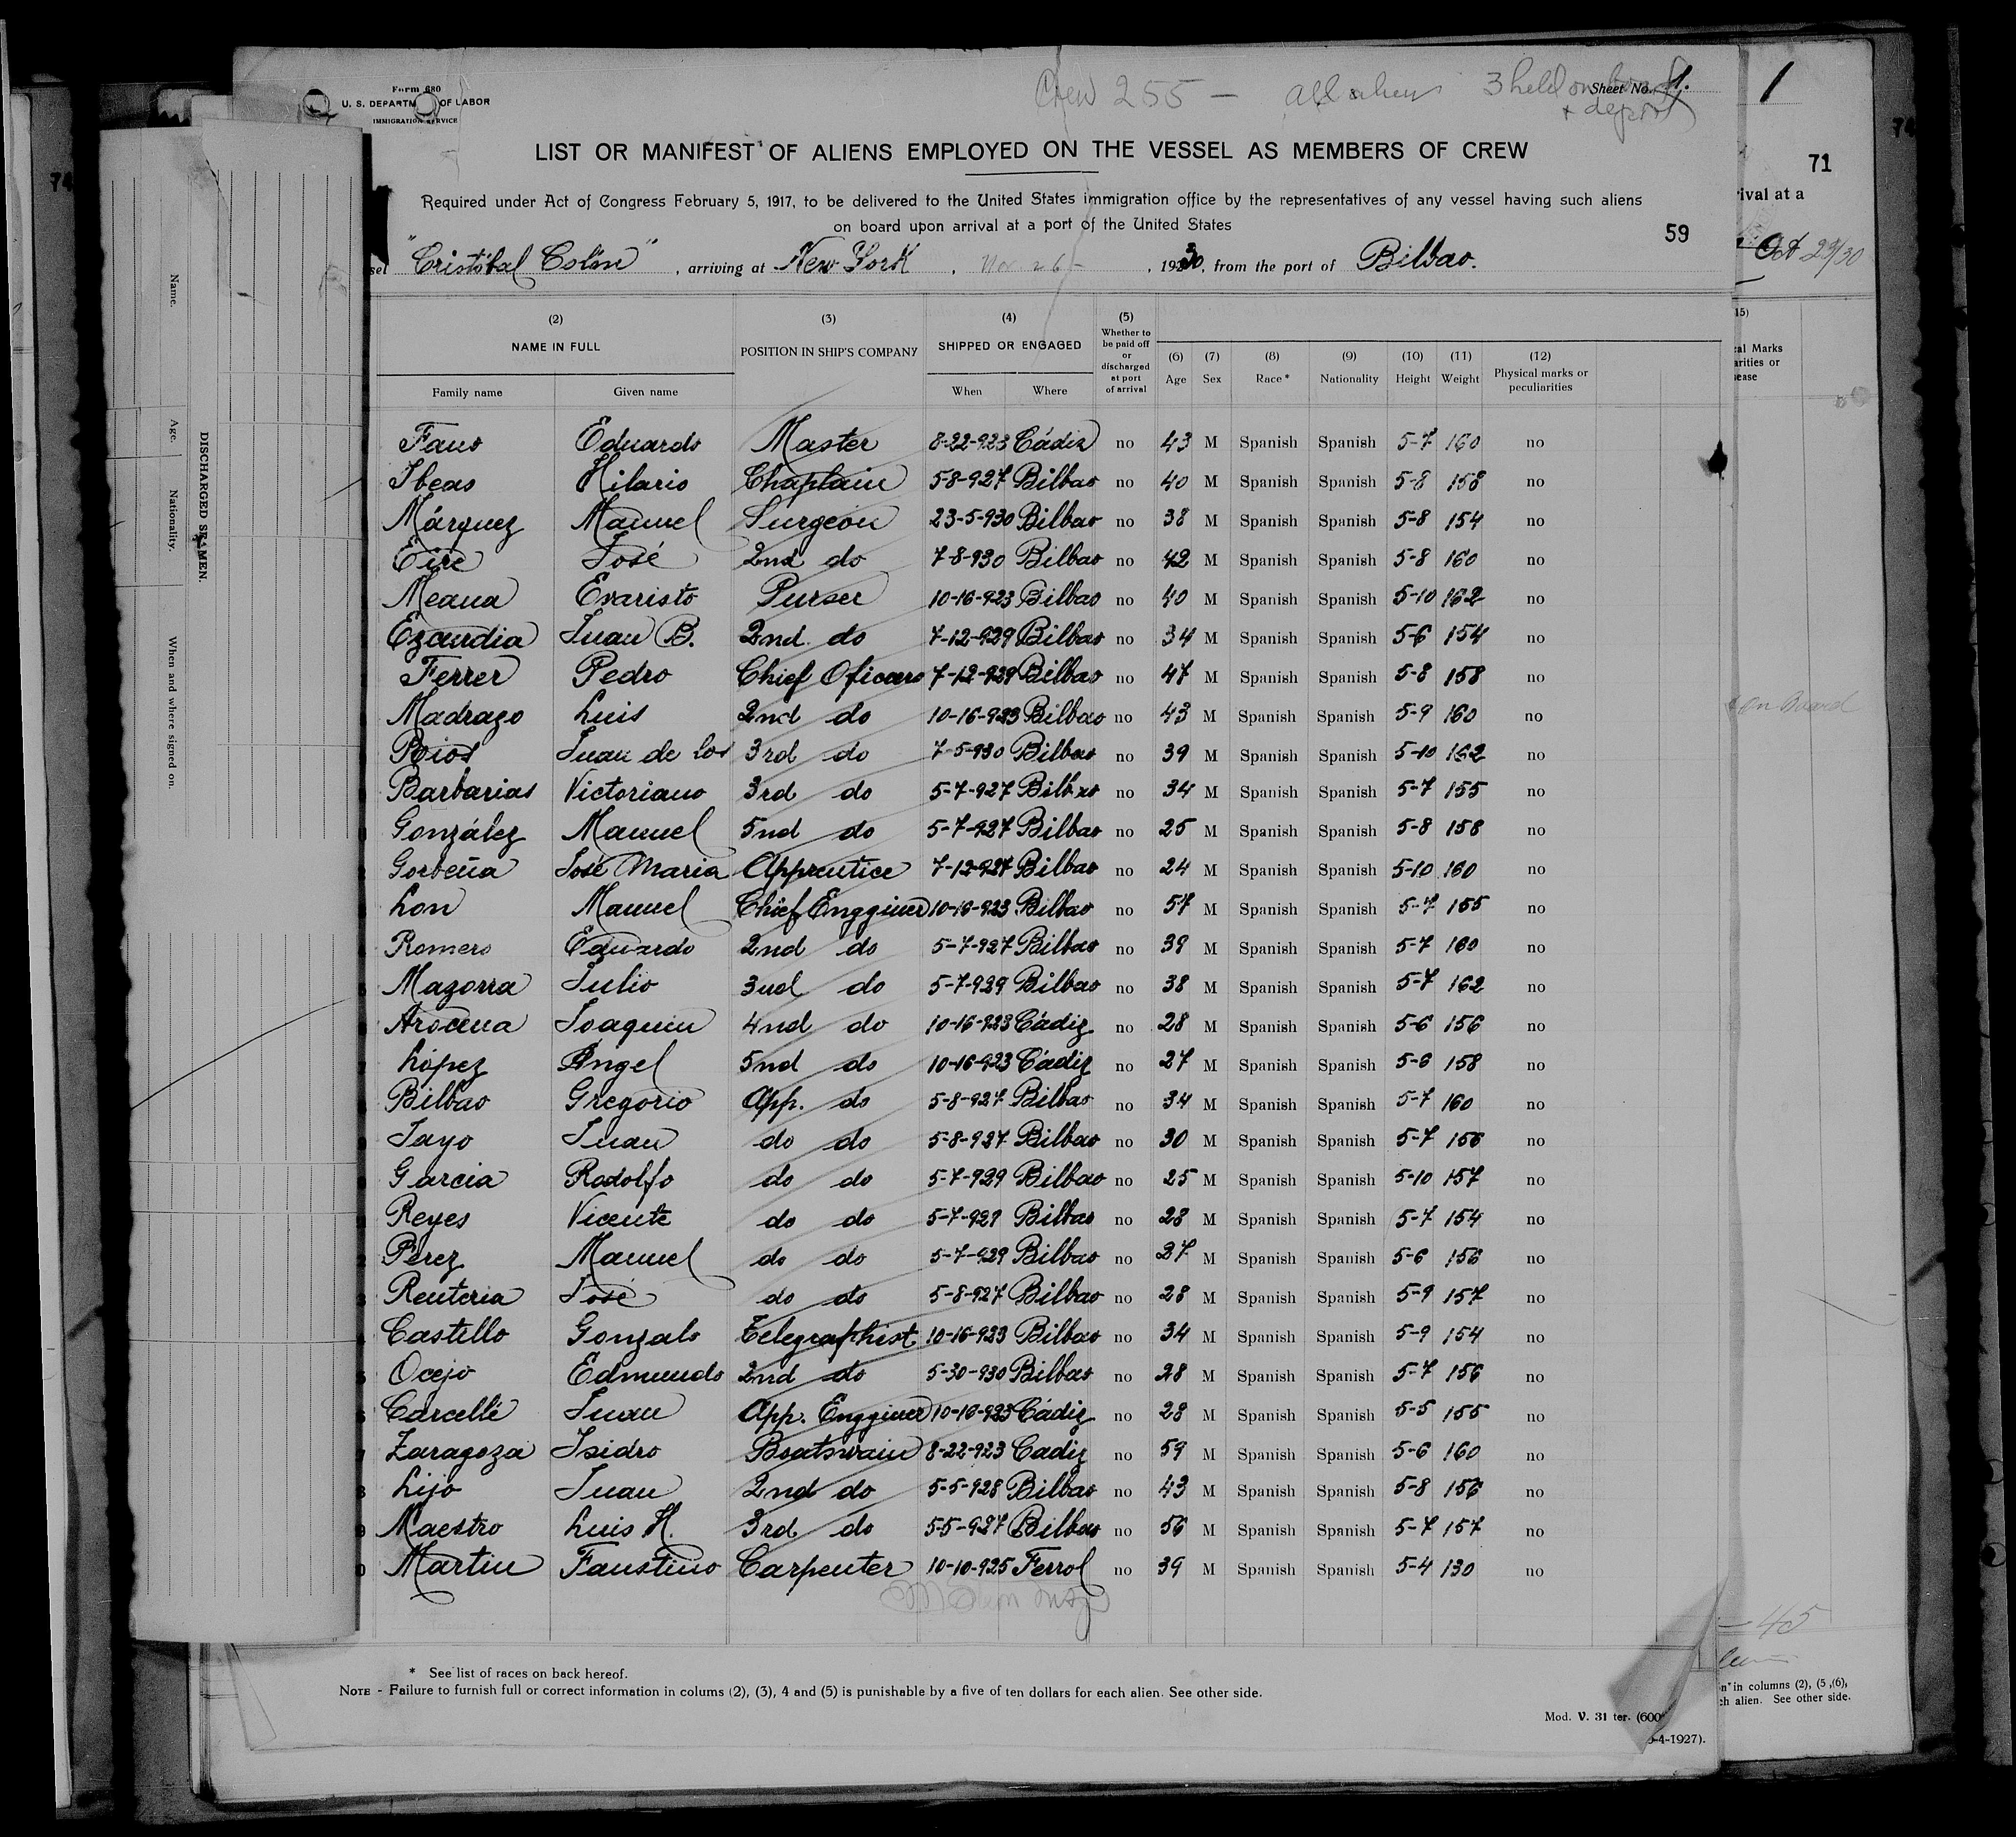 Form 680
U. S. DEPARTM OF LABOR
IMMIGRATION SERVICE
Crew 255 — all aliens 3 held on board
+ deport
Sheet No. 1.
1
LIST OR MANIFEST OF ALIENS EMPLOYED ON THE VESSEL AS MEMBERS OF CREW
71
Required under Act of Congress February 5, 1917, to be delivered to the United States immigration office by the representatives of any vessel having such aliens
on board upon arrival at a port of the United States
59
rival at a
sel "Cristóbal Colón", arriving at New York, Nov 26, 1930, from the port of Bilbao.
Oct 29/30
(2) (3) (4) (5)
NAME IN FULL POSITION IN SHIP'S COMPANY SHIPPED OR ENGAGED Whether to be paid off or discharged at port of arrival (6) Age (7) Sex (8) Race * (9) Nationality (10) Height (11) Weight (12) Physical marks or peculiarities
Family name Given name When Where
15)
cal Marks
arities or
ease
Fano Eduardo Master 8-22-923 Cádiz no 43 M Spanish Spanish 5-7 160 no
Ibeas Hilario Chaplain 5-8-927 Bilbao no 40 M Spanish Spanish 5-8 158 no
Márquez Manuel Surgeon 23-5-930 Bilbao no 38 M Spanish Spanish 5-8 154 no
Eire José 2nd do 7-8-930 Bilbao no 42 M Spanish Spanish 5-8 160 no
Meana Evaristo Purser 10-16-923 Bilbao no 40 M Spanish Spanish 5-10 162 no
Ezcurdia Juan B. 2nd. do 7-12-929 Bilbao no 34 M Spanish Spanish 5-6 154 no
Ferrer Pedro Chief Oficcers 7-12-929 Bilbao no 47 M Spanish Spanish 5-8 158 no
Madrazo Luis 2nd do 10-16-923 Bilbao no 43 M Spanish Spanish 5-9 160 no
on board
Rios Juan de los 3rd do 7-5-930 Bilbao no 39 M Spanish Spanish 5-10 162 no
Barbarias Victoriano 3rd do 5-7-927 Bilbao no 34 M Spanish Spanish 5-7 155 no
González Manuel 5nd do 5-7-927 Bilbao no 25 M Spanish Spanish 5-8 158 no
Gorbeña José Maria Apprentice 7-12-927 Bilbao no 24 M Spanish Spanish 5-10 160 no
Lon Manuel Chief Enggineer 10-16-923 Bilbao no 57 M Spanish Spanish 5-7 155 no
Romero Eduardo 2nd do 5-7-927 Bilbao no 39 M Spanish Spanish 5-7 160 no
Mazorra Julio 3nd do 5-7-929 Bilbao no 38 M Spanish Spanish 5-7 162 no
Arocena Joaquin 4nd do 10-16-923 Cádiz no 28 M Spanish Spanish 5-6 156 no
López Angel 5nd do 10-16-923 Cádiz no 27 M Spanish Spanish 5-6 158 no
Bilbao Gregorio App. do 5-8-927 Bilbao no 34 M Spanish Spanish 5-7 160 no
Jayo Juan do do 5-8-927 Bilbao no 30 M Spanish Spanish 5-7 156 no
Garcia Rodolfo do do 5-7-929 Bilbao no 25 M Spanish Spanish 5-10 157 no
Reyes Vicente do do 5-7-929 Bilbao no 28 M Spanish Spanish 5-7 154 no
Perez Manuel do do 5-7-929 Bilbao no 27 M Spanish Spanish 5-6 156 no
Renteria José do do 5-8-927 Bilbao no 28 M Spanish Spanish 5-9 157 no
Castillo Gonzalo Telegraphist 10-16-923 Bilbao no 34 M Spanish Spanish 5-9 154 no
Ocejo Edmundo 2nd do 5-30-930 Bilbao no 28 M Spanish Spanish 5-7 156 no
Carcellé Juan App. Enggineer 10-16-923 Cádiz no 28 M Spanish Spanish 5-5 155 no
Zaragoza Isidro Boatswain 8-22-923 Cadiz no 59 M Spanish Spanish 5-6 160 no
Lijo Juan 2nd do 5-5-928 Bilbao no 43 M Spanish Spanish 5-8 156 no
Maestro Luis H. 3rd do 5-5-927 Bilbao no 56 M Spanish Spanish 5-7 157 no
Martin Faustino Carpenter 10-10-925 Ferrol no 39 M Spanish Spanish 5-4 130 no
— 45
* See list of races on back hereof.
NOTE - Failure to furnish full or correct information in colums (2), (3), 4 and (5) is punishable by a five of ten dollars for each alien. See other side.
n" in columns (2), (5 ,(6),
ch alien. See other side.
Mod. V. 31 ter. (600
-4-1927).
DISCHARGED SEAMEN.
Name.
Age.
Nationality.
When and where signed on.
74
74